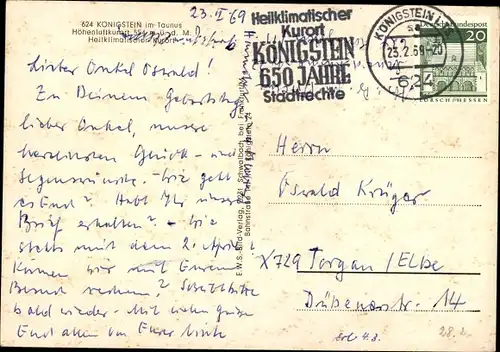 624 KÖNIGSTEIN im Taunus
Höhenluftkurort
Heilklimatischer Kurort
23. II 69
Heilklimatischer
Kurort
KÖNIGSTEIN
650 JAHRE
Stadtrechte
KÖNIGSTEIN
25.2.69-20
624
Deutsche Bundespost
20
LORSCH/HESSEN
Lieber Onkel Oswald!
Zu Deinem Geburtstag,
lieber Onkel, unsere
herzlichsten Glück- und
Segenswünsche. Wie geht
es Euch? Habt Ihr unseren
Brief erhalten? - Wie
steht mit dem 2. April?
Können wir mit Eurem
Besuch rechnen? Schreibt bitte
bald wieder. Mit vielen Grüßen
Euch allen von Eurer
E.W.S. Bild-Verlag, 6231 Schwalbach bei Frankfurt/Main
Bahnstraße
Herrn
Oswald Krüger
X729 Torgau/Elbe
Dübenerstr. 14
28.2.